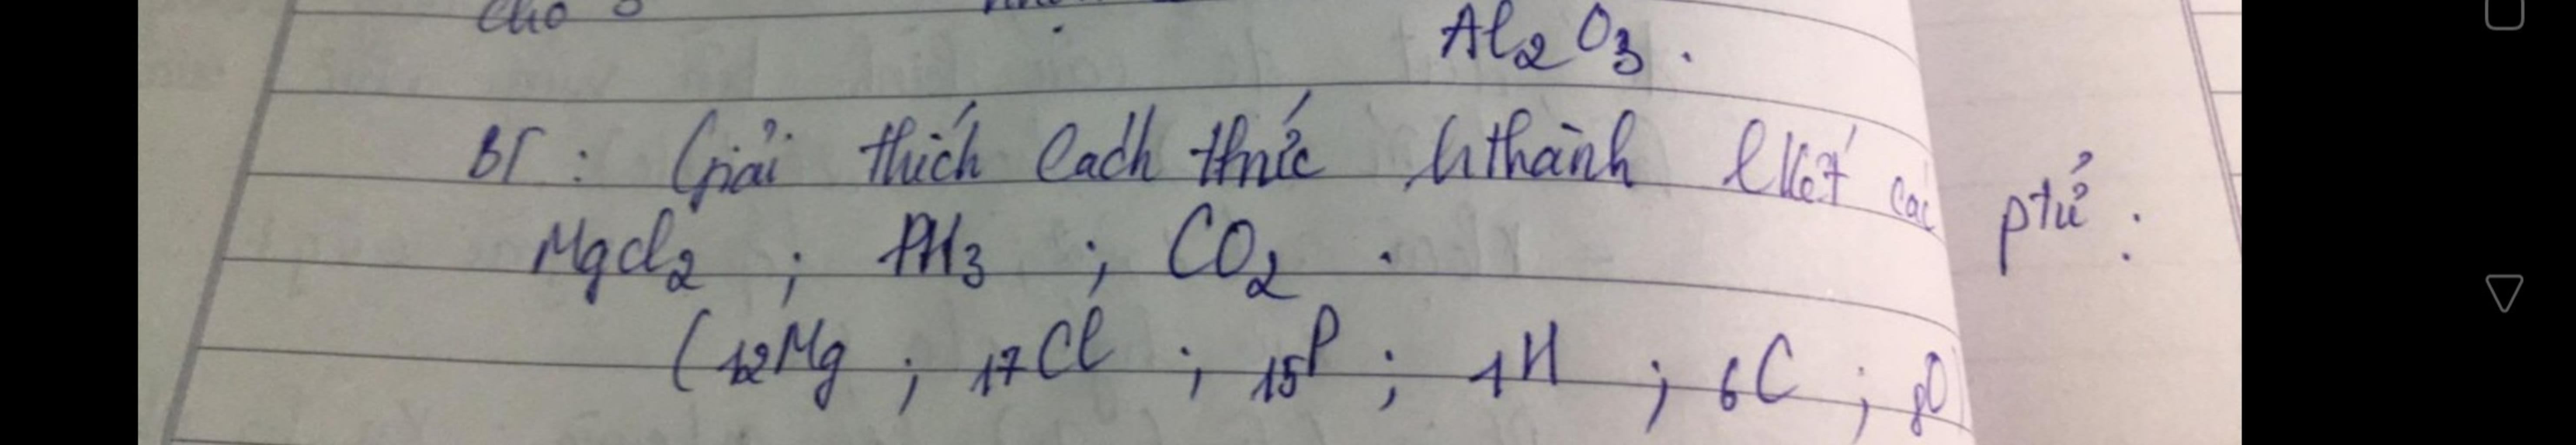 cho
Al2O3.
BT: Giải thích cách thức hthành lkết các ptử:
MgCl2 ; PH3 ; CO2.
(12Mg ; 17Cl ; 15P ; 1H ; 6C ; 8O)